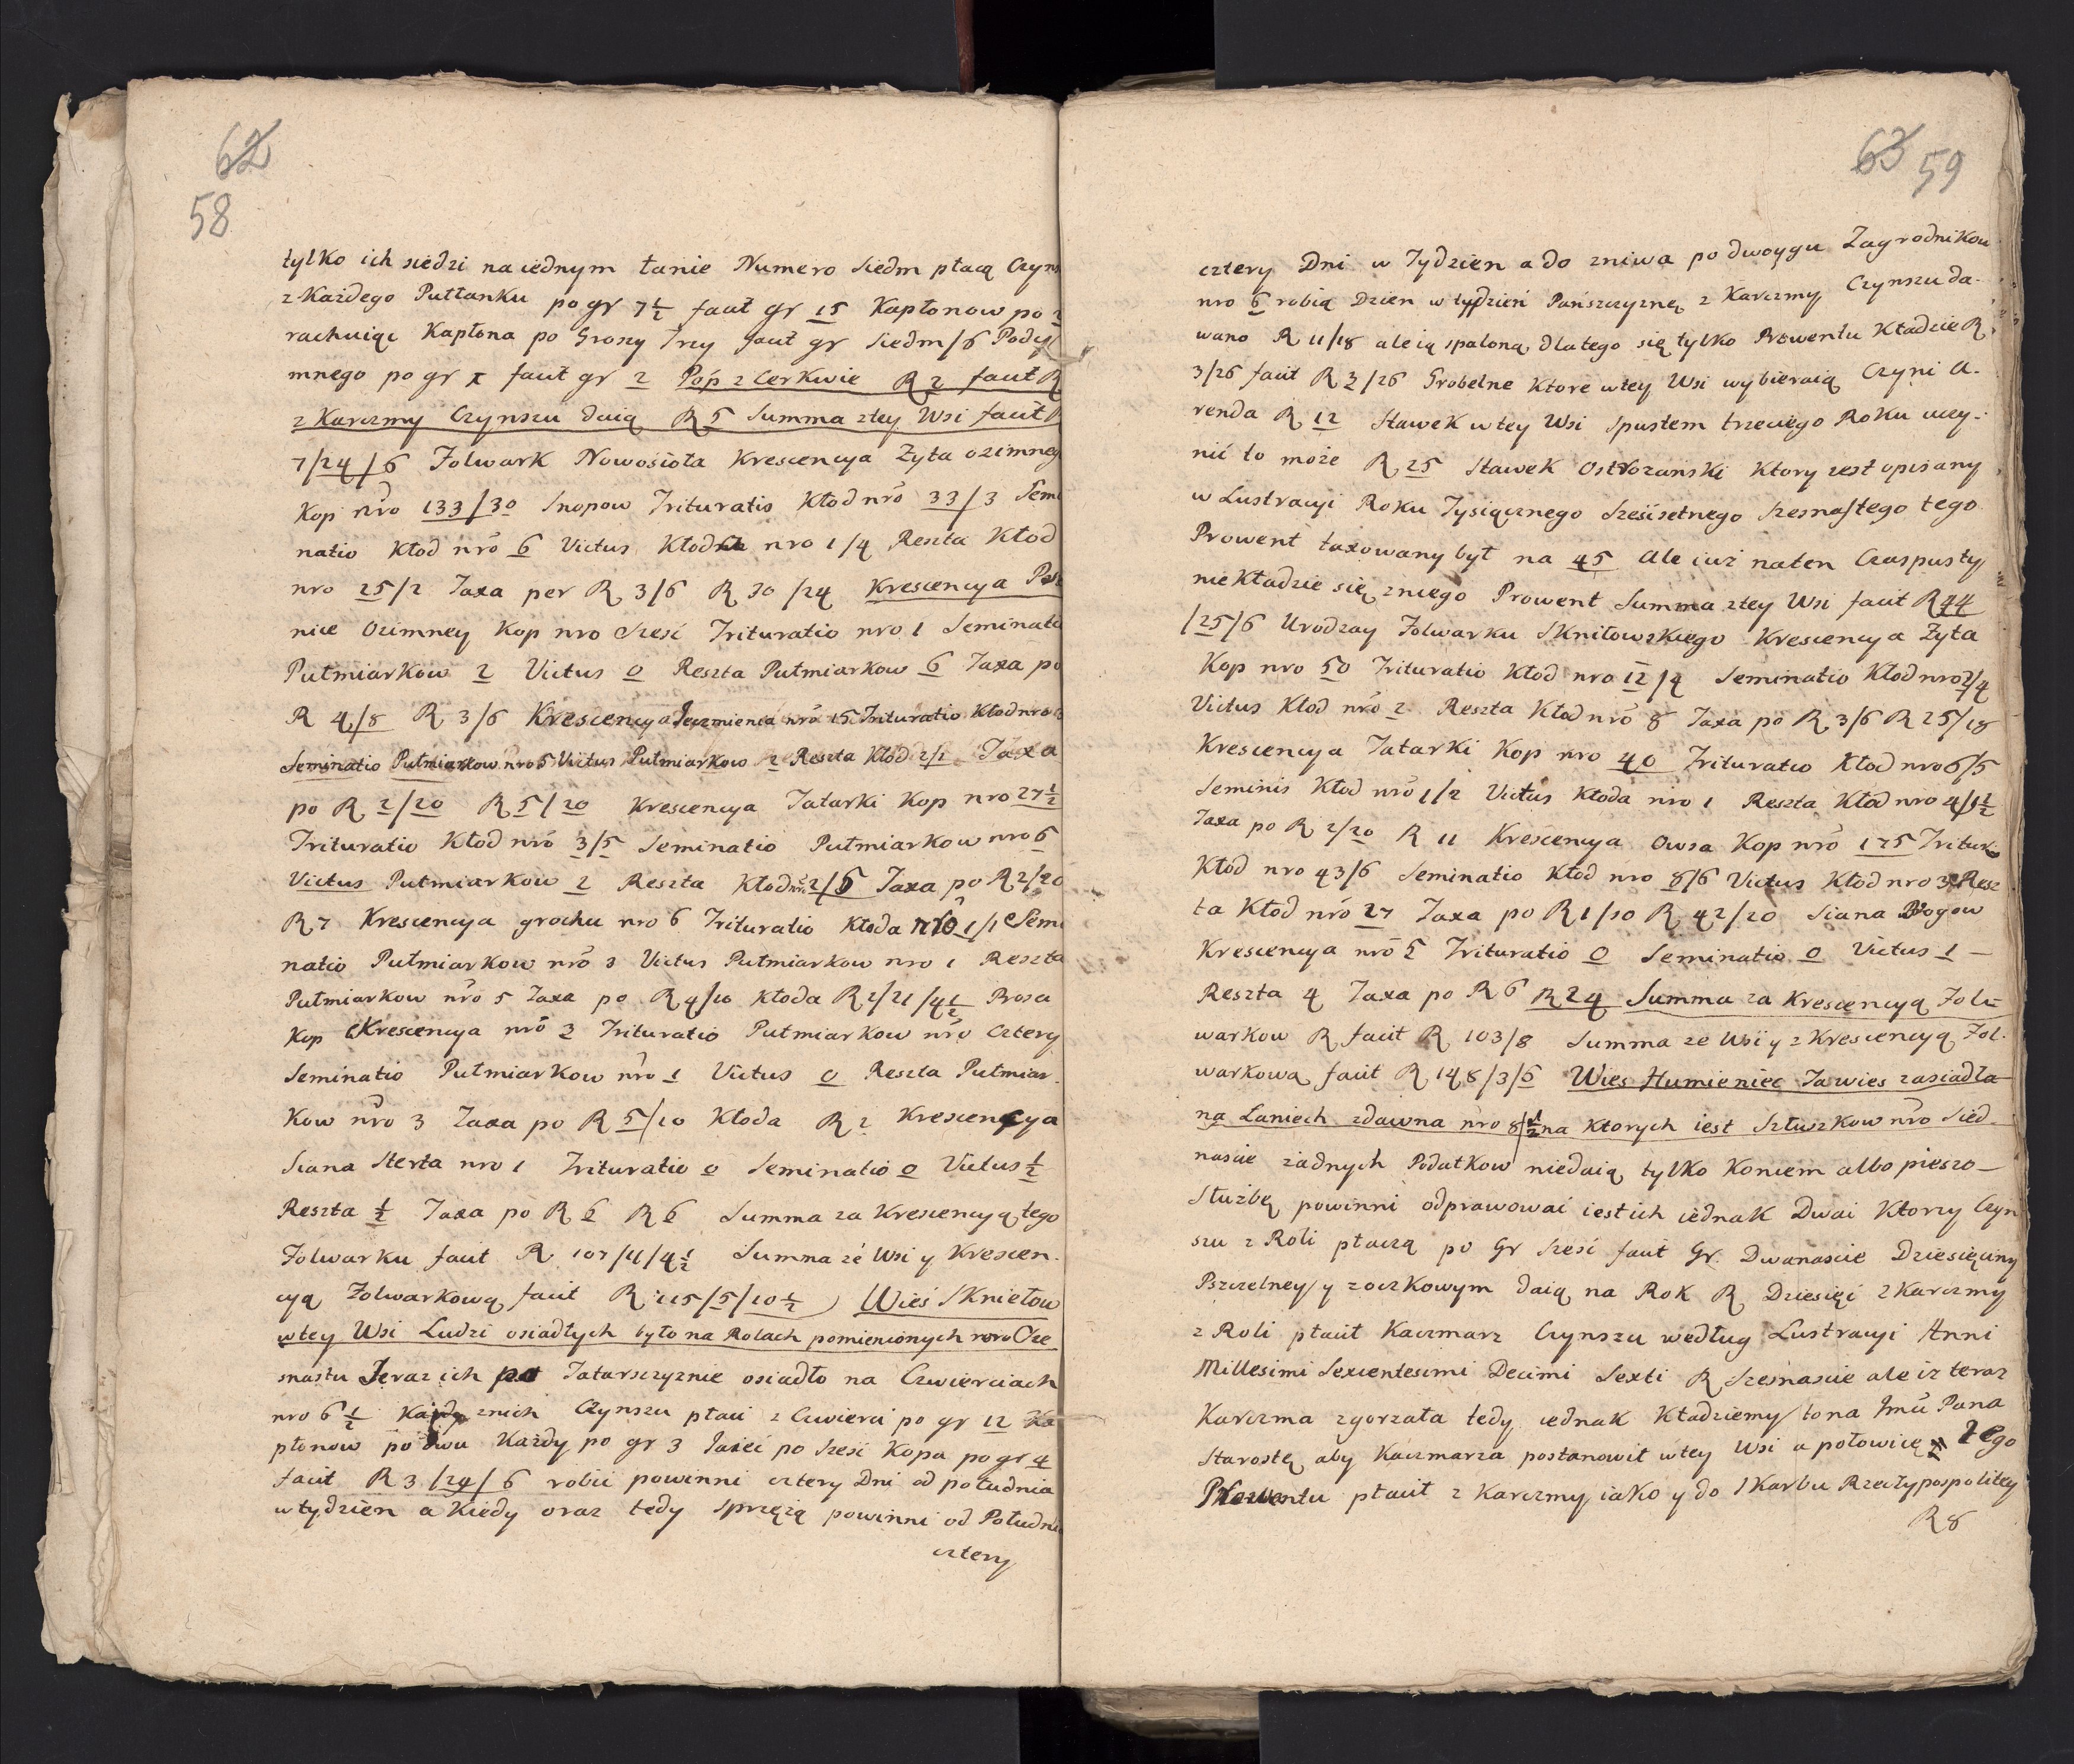 62
58
tylko ich siedzi na iednym łanie Numero Siedm płacą Czyns
z Każdego Pułłanku po gr 7½ facit gr 15 Kapłonow po 2
rachuiąc Kapłona po Groszy Trzy facit gr Siedm/6 Pody
mnego po gr 1 facit gr 2 Pop z Cerkwie R 2 facit R
z Karczmy Czynszu daią R 5 Summa ztey Wsi facit
7/24/6 Folwark Nowosioła Krescencya Zyta ozimneg
Kop nro 133/30 Snopow Trituratio Kłod nro 33/3 Semi
natio Kłod nro 6 Victus Kłod nro 1/4 Reszta Kłod
nro 25/2 Taxa per R 3/6 R 30/24 Krescencya Psze
nice Ozimney Kop nro Szesć Trituratio nro 1 Seminatio
Pułmiarkow 2 Victus 0 Reszta Pułmiarkow 6 Taxa po
R 4/8 R 3/6 Krescencya Jęczmienia nro 15 Trituratio Kłod nro 3
Seminatio Pułmiarkow nro 5 Victus Pułmiarkow 2 Reszta Kłod 2/1 Taxa
po R 2/20 R 5/20 Krescencya Tatarki Kop nro 27½
Trituratio Kłod nro 3/5 Seminatio Pułmiarkow nro 6
Victus Pułmiarkow 2 Reszta Kłod nro 2/5 Taxa po R 2/20
R 7 Krescencya grochu nro 6 Trituratio Kłoda nro 1/1 Semi
natio Pułmiarkow nro 3 Victus Pułmiarkow nro 1 Reszta
Pułmiarkow nro 5 Taxa po R 4/10 Kłoda R 2/21/4½ Prosa
Kop Krescencya nro 3 Trituratio Pułmiarkow nro Cztery
Seminatio Pułmiarkow nro 1 Victus 0 Reszta Pułmiar
kow nro 3 Taxa po R 5/10 Kłoda R 2 Krescencya
Siana Sterta nro 1 Trituratio 0 Seminatio 0 Victus ½
Reszta ½ Taxa po R 6 R 6 Summa za Krescencyą tego
Folwarku facit R 107/11/4½ Summa ze Wsi y Krescen
cyą Folwarkową facit R 115/5/10½ Wieś Sknielow
wtey Wsi Ludzi osiadłych było na Rolach pomienionych nro Ośe
snastu Teraz ich po Tatarszczyznie osiadło na Czwierciach
nro 6½ Kazdy znich Czynszu płaci z Cwierci po gr 12 Ka
płonow po dwu Każdy po gr 3 Jaiec po Szesć Kopa po gr 4
facit R 3/24/6 robic powinni cztery Dni od południa
w tydzien a Kiedy oraz tedy sprzężą powinni od Południa
cztery
63 59
cztery Dni w Tydzien a do zniwa po dwoygu Zagrodnikow
nro 6 robią Dzien w tydzień Pańszczyznę z Karczmy Czynszu da
wano R 11/18 ale ią spaloną dlatego się tylko Prowentu Kładzie R
3/26 facit R 3/26 Grobelne Ktore wtey Wsi wybieraią Czyni A
renda R 12 Stawek wtey Wsi Spustem trzeciego Roku uczy
nić to może R 25 Stawek Ostrozanski Ktory iest opisany
w Lustracyi Roku Tysiącznego Sześćsetnego Szesnastego tego
Prowent taxowany był na 45 Ale iuż naten Czas pusty
nie Kładzie się zniego Prowent Summa ztey Wsi facit R 44
/25/6 Urodzay Folwarku Skniłowskiego Krescencya Zyta
Kop nro 50 Trituratio Kłod nro 12/4 Seminatio Kłod nro 2/4
Victus Kłod nro 2 Reszta Kłod nro 8 Taxa po R 3/6 R 25/18
Krescencya Tatarki Kop nro 40 Trituratio Kłod nro 6/5
Seminis Kłod nro 1/2 Victus Kłoda nro 1 Reszta Kłod nro 4/1½
Taxa po R 2/20 R 11 Krescencya Owsa Kop nro 175 Tritur
Kłod nro 43/6 Seminatio Kłod nro 8/6 Victus Kłod nro 3 Resz
ta Kłod nro 27 Taxa po R 1/10 R 42/20 Siana Brogow
Krescencya nro 5 Trituratio 0 Seminatio 0 Victus 1
Reszta 4 Taxa po R 6 R 24 Summa za Krescencyą Fol
warkow R facit R 103/8 Summa ze Wsi y z Krescencyą Fol
warkową facit R 148/3/6 Wies Humieniec Ta wies zasiadła
na Laniech zdawna nro 8/½ na Ktorych iest Szłuzkow nro Sied
nascie zadnych Podatkow niedaią tylko Koniem albo pieszo
Służbę powinni odprawować iest ich iednak Dwai Ktorzy Czyn
szu z Roli płaczą po Gr Szesć facit Gr. Dwanascie Dziesięciny
Pszczelney y zoczkowym daią na Rok R Dziesięć z Karczmy
z Roli płacił Kaczmarz Czynszu według Lustracyi Anni
Millesimi Sexcentesimi Decimi Sexti R Szesnascie ale iz teraz
Karczma zgorzała tedy iednak Kładziemy to na Jmć Pana
Starostę aby Kaczmarza postanowił wtey Wsi a połowicę Tego
Prowentu płacił z Karczmy iako y do Skarbu Rzeczypospolitey
R 8